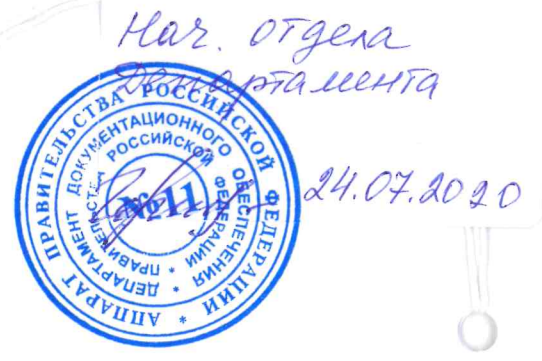 Нач. отдела
Департамента
АППАРАТ ПРАВИТЕЛЬСТВА РОССИЙСКОЙ ФЕДЕРАЦИИ *
ДЕПАРТАМЕНТ ДОКУМЕНТАЦИОННОГО ОБЕСПЕЧЕНИЯ *
ПРАВИТЕЛЬСТВА РОССИЙСКОЙ ФЕДЕРАЦИИ *
№11
24.07.2020